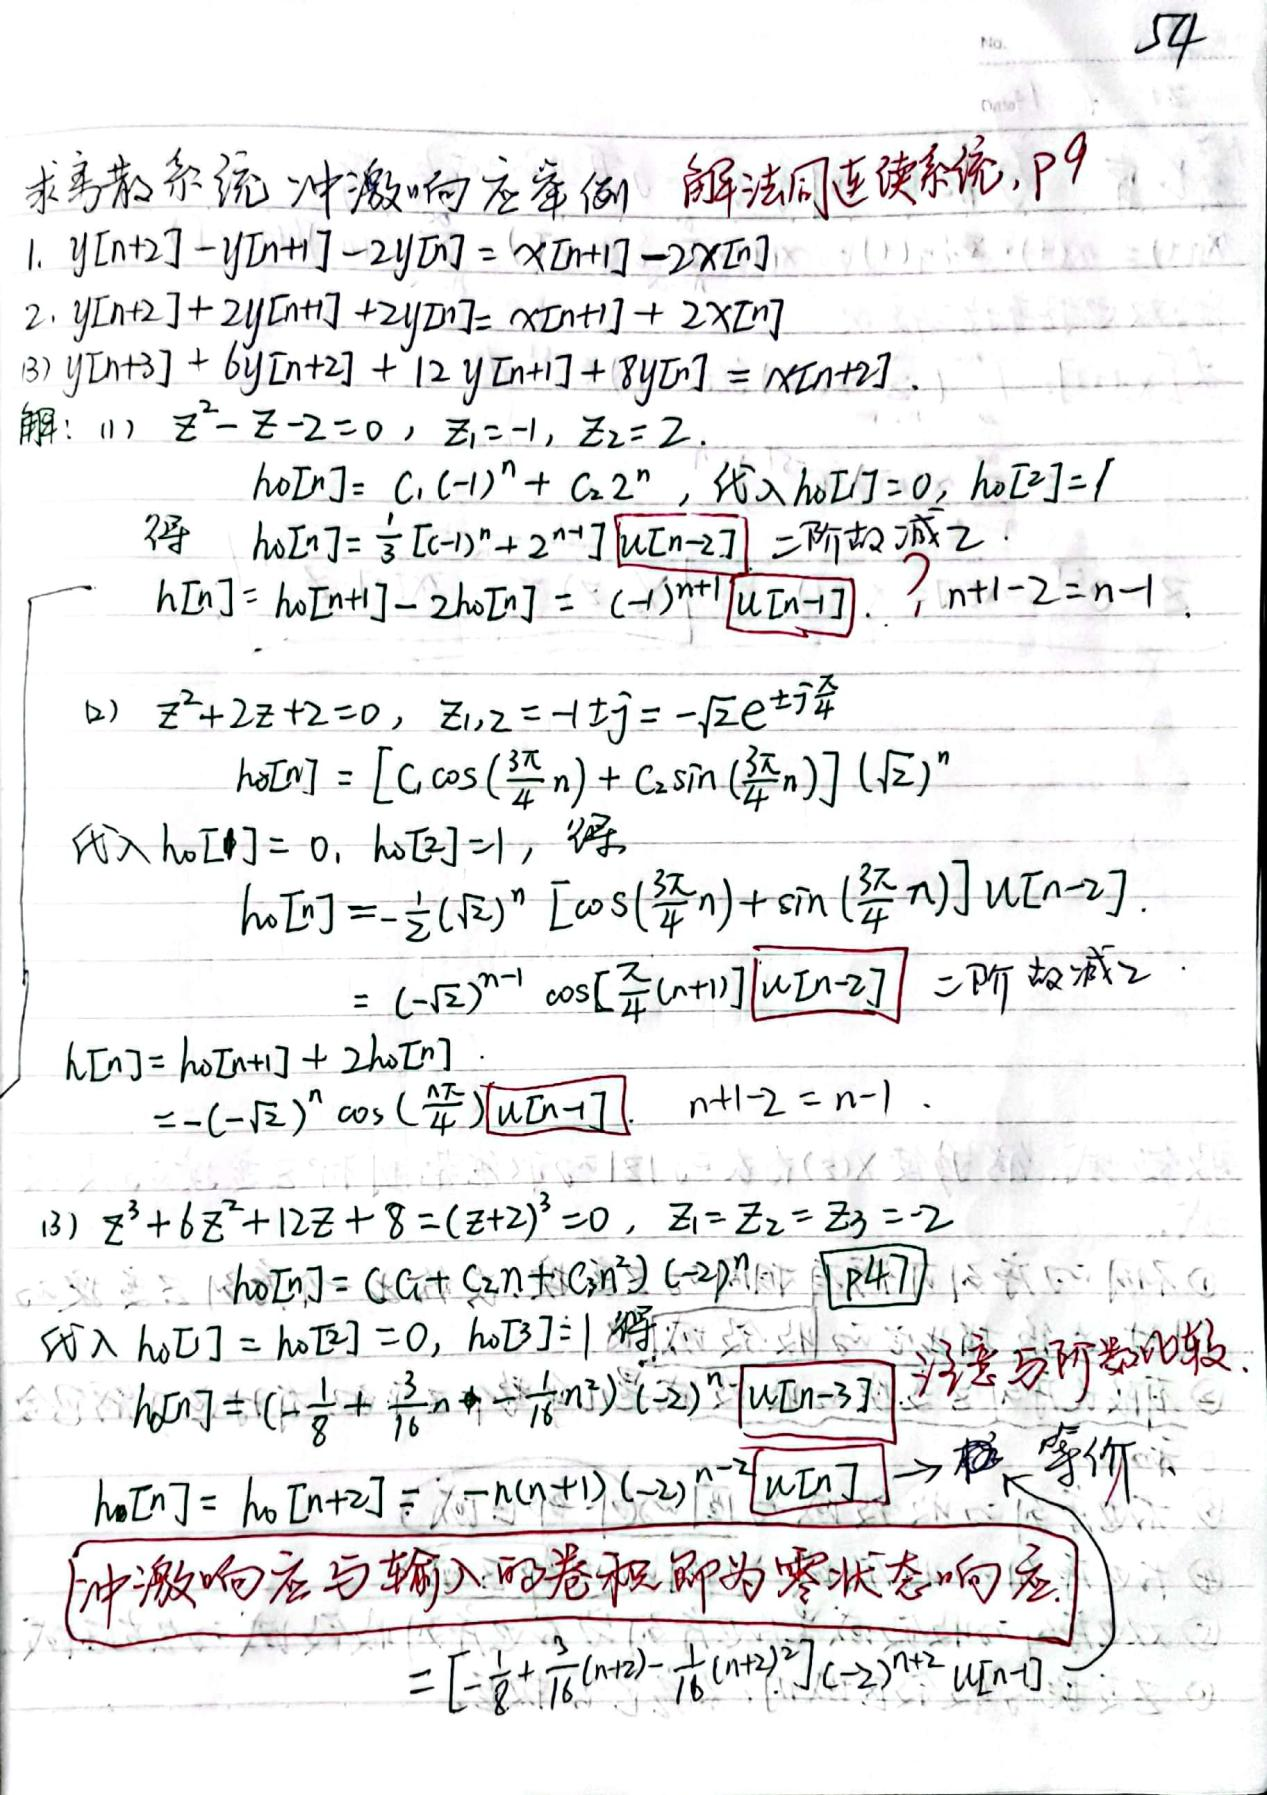 No.
54
求离散系统冲激响应举例 解法同连续系统,P9
1. y[n+2]-y[n+1]-2y[n]=x[n+1]-2x[n]
2. y[n+2]+2y[n+1]+2y[n]=x[n+1]+2x[n]
(3) y[n+3]+6y[n+2]+12y[n+1]+8y[n]=x[n+2].
解: (1) z²-z-2=0, z₁=-1, z₂=2.
h₀[n]=C₁(-1)ⁿ+C₂2ⁿ, 代入h₀[1]=0, h₀[2]=1
得 h₀[n]=1/3[(-1)ⁿ+2ⁿ⁻¹]u[n-2] 二阶故减2.
h[n]=h₀[n+1]-2h₀[n]=(-1)ⁿ⁺¹u[n-1]. ? n+1-2=n-1.
(2) z²+2z+2=0, z₁,₂=-1±j=-√2e^(±jπ/4)
h₀[n]=[C₁cos(3π/4 n)+C₂sin(3π/4 n)](√2)ⁿ
代入h₀[1]=0, h₀[2]=1, 得
h₀[n]=-1/2(√2)ⁿ[cos(3π/4 n)+sin(3π/4 n)]u[n-2].
=(-√2)ⁿ⁻¹cos[π/4(n+1)]u[n-2] 二阶故减2.
h[n]=h₀[n+1]+2h₀[n].
=-(-√2)ⁿcos(nπ/4)u[n-1]. n+1-2=n-1.
(3) z³+6z²+12z+8=(z+2)³=0, z₁=z₂=z₃=-2
h₀[n]=(C₁+C₂n+C₃n²)(-2)ⁿ P47
代入h₀[1]=h₀[2]=0, h₀[3]=1得
h₀[n]=(-1/8+3/16n-1/16n²)(-2)ⁿu[n-3] 注意与阶数比较.
h[n]=h₀[n+2]=-n(n+1)(-2)ⁿ⁻²u[n] → 等价.
冲激响应与输入的卷积即为零状态响应.
=[-1/8+3/16(n+2)-1/16(n+2)²](-2)ⁿ⁺²u[n-1]